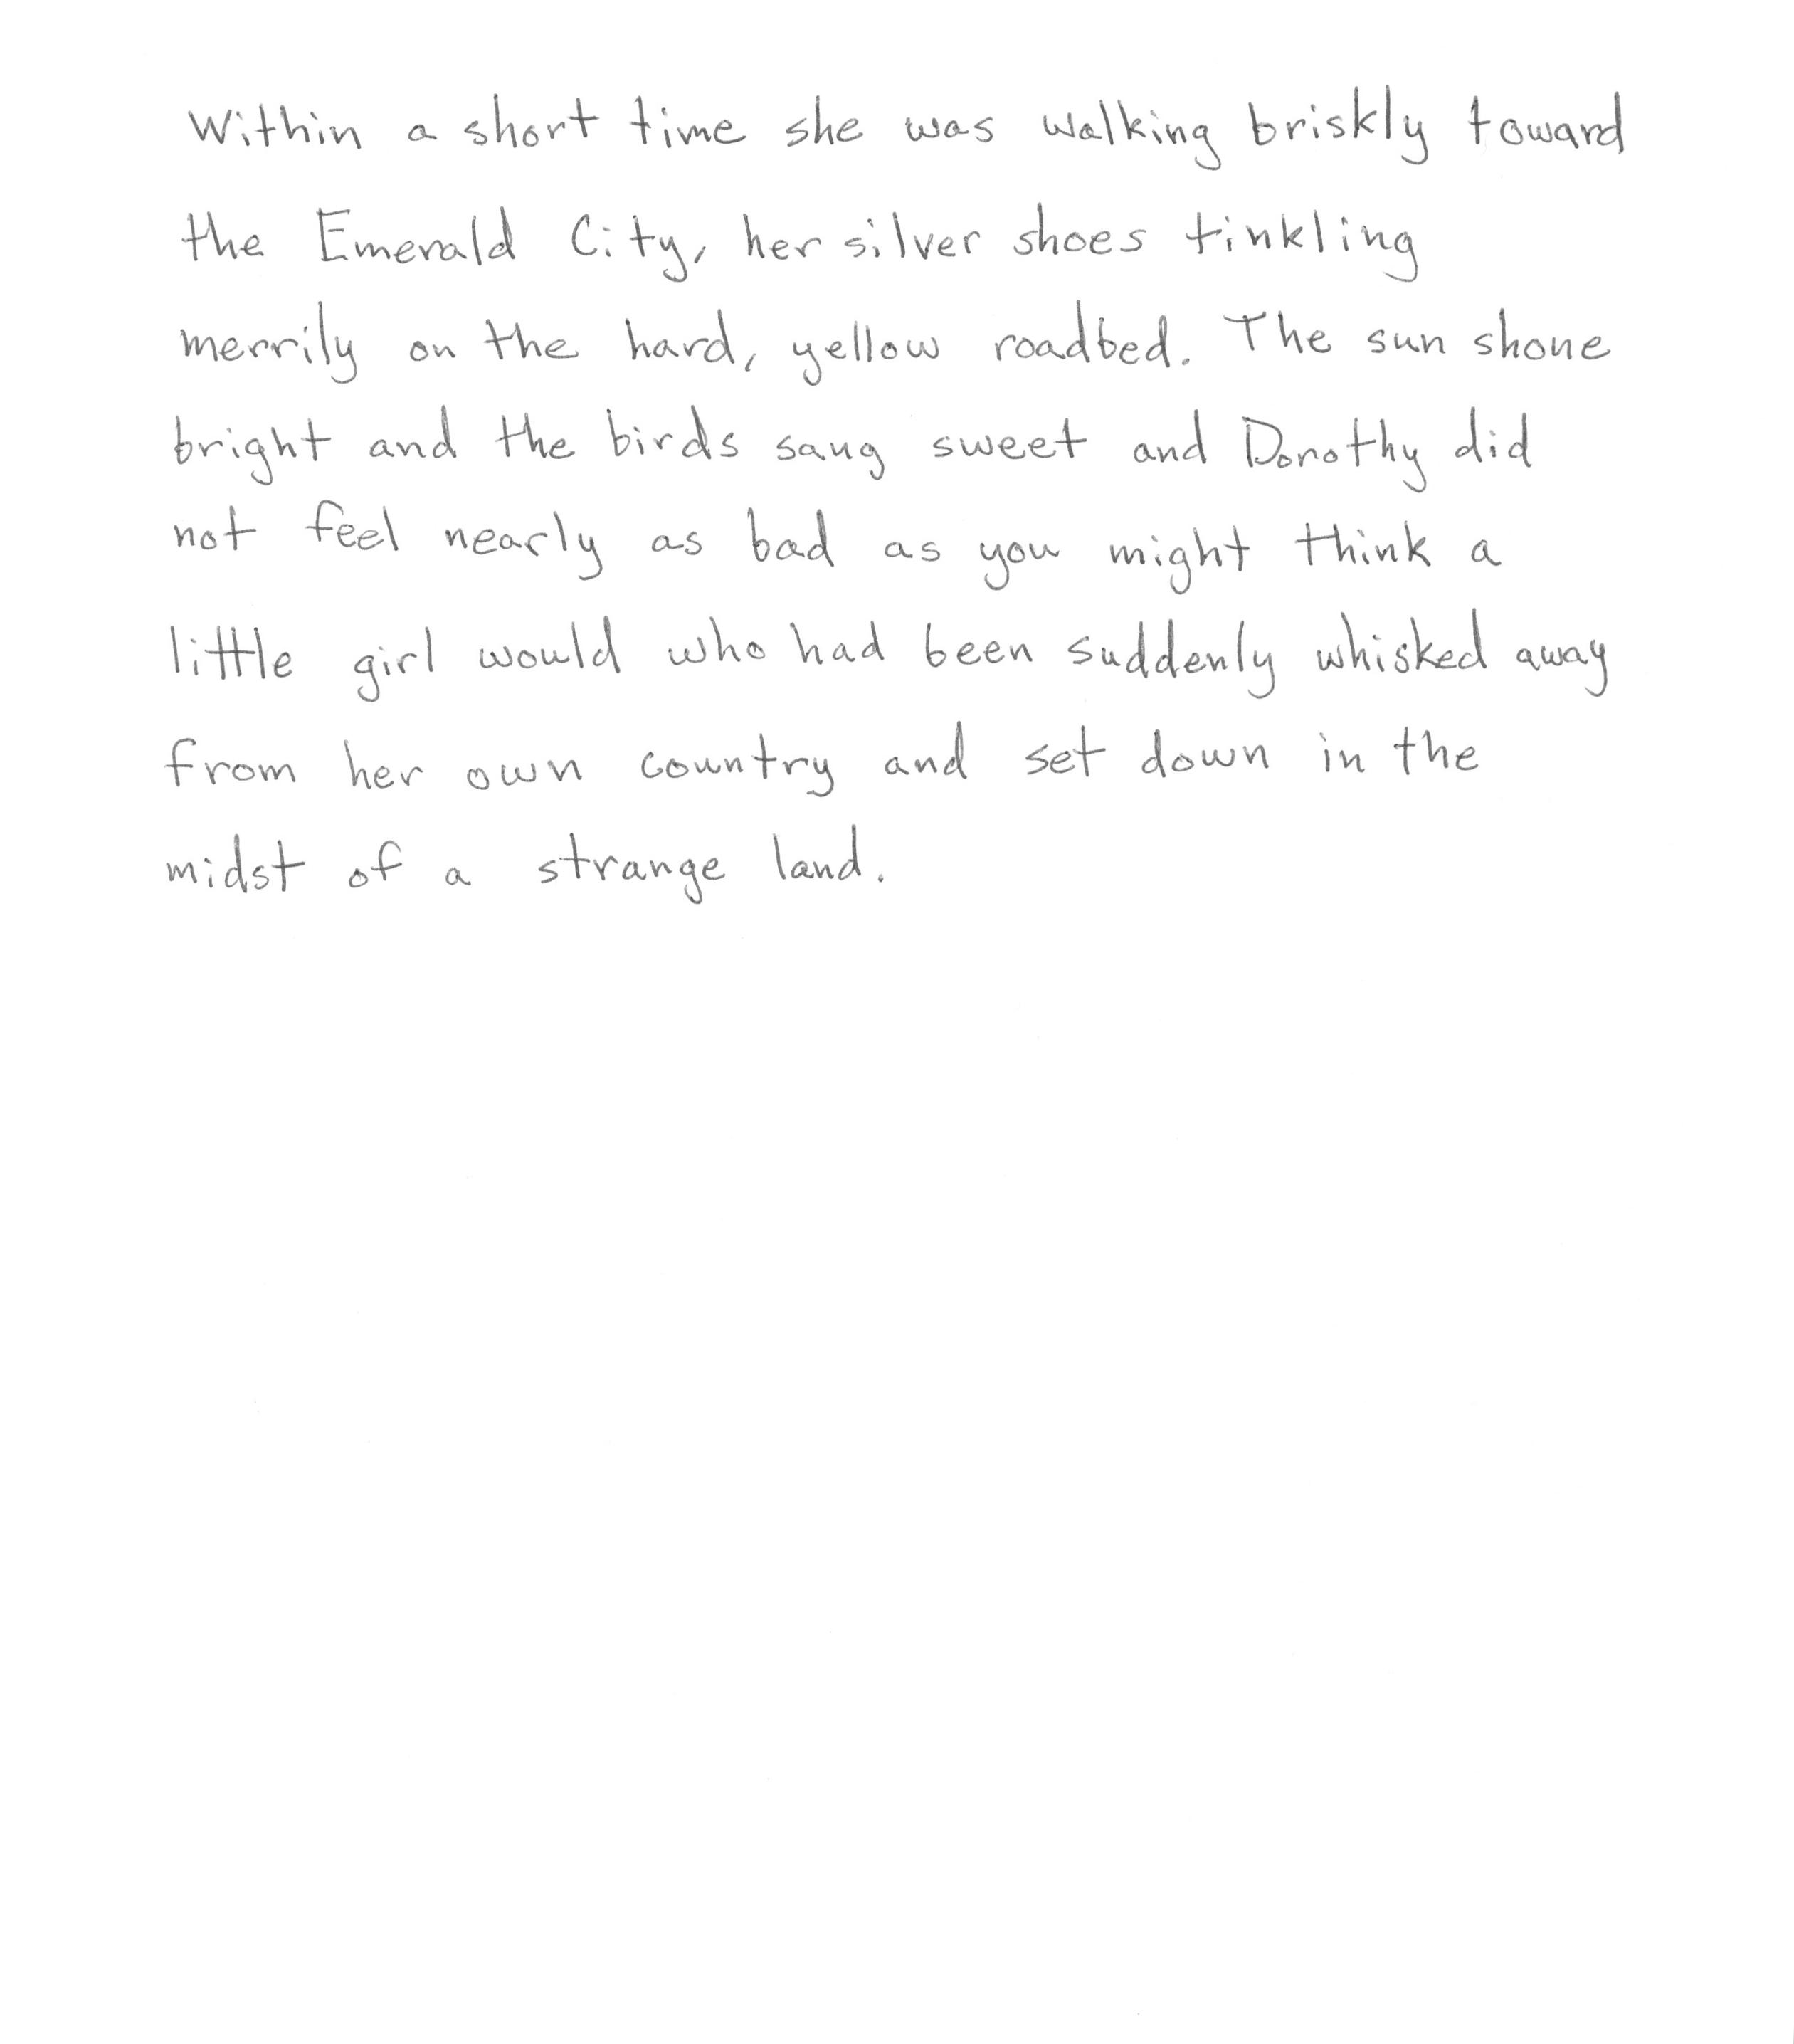 Within a short time she was walking briskly toward
the Emerald City, her silver shoes tinkling
merrily on the hard, yellow roadbed. The sun shone
bright and the birds sang sweet and Dorothy did
not feel nearly as bad as you might think a
little girl would who had been suddenly whisked away
from her own country and set down in the
midst of a strange land.